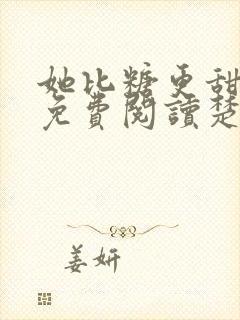 她比糖更甜
免費閱讀楚
姜妍